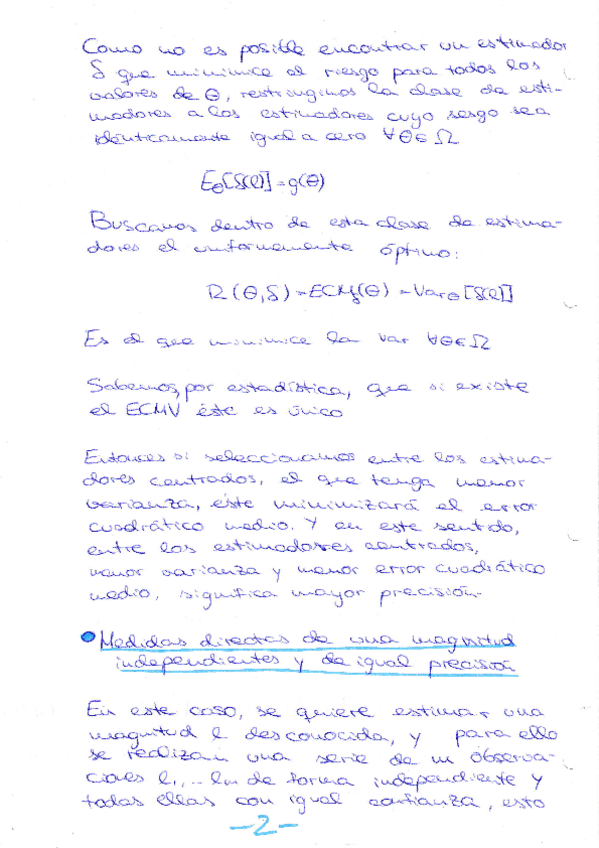 Como no es posible encontrar un estimador
δ que minimice el riesgo para todos los
valores de θ, restringimos la clase de esti-
madores a los estimadores cuyo sesgo sea
idénticamente igual a cero ∀θ∈Ω
Eθ[δ(l)]=g(θ)
Buscamos dentro de esta clase de estima-
dores el uniformemente óptimo:
R(θ,δ)=ECMδ(θ)=Varθ[δ(l)]
Es el que minimice la var ∀θ∈Ω
Sabemos, por estadística, que si existe
el ECMV éste es único
Entonces si seleccionamos entre los estima-
dores centrados, el que tenga menor
varianza, éste minimizará el error
cuadrático medio. Y en este sentido,
entre los estimadores centrados,
menor varianza y menor error cuadrático
medio, significa mayor precisión.
• Medidas directas de una magnitud
independientes y de igual precisión
En este caso, se quiere estimar una
magnitud l desconocida, y para ello
se realizan una serie de m observa-
ciones l1,...lm de forma independiente y
todas ellas con igual confianza, esto
-2-